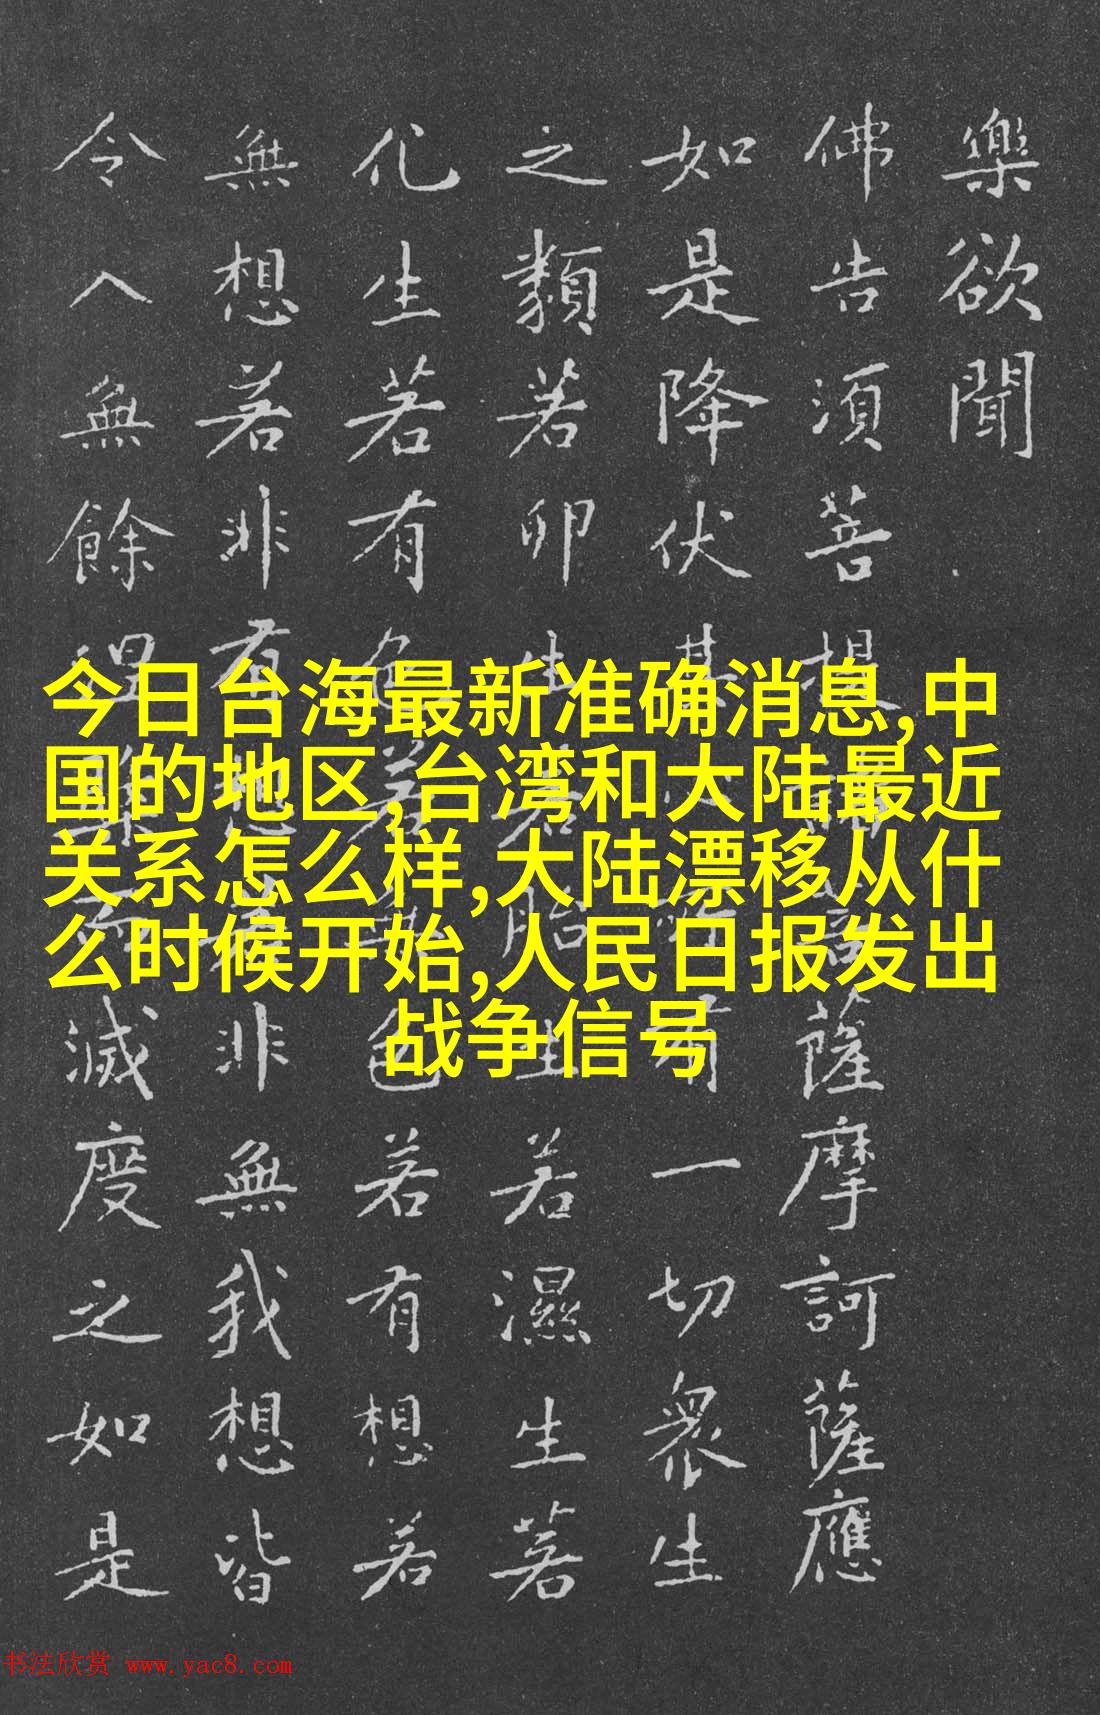 今日台海最新准确消息,中
国的地区,台湾和大陆最近
关系怎么样,大陆漂移从什
么时候开始,人民日报发出
战争信号
樂欲聞
佛告須菩提薩摩訶薩應
如是降伏其有一切衆生
之類若卵生若胎生若濕生若
化生若有色若色若有想若
無想若非有非無我想皆
令入無餘滅度之如是
书法欣赏 www.yac8.com